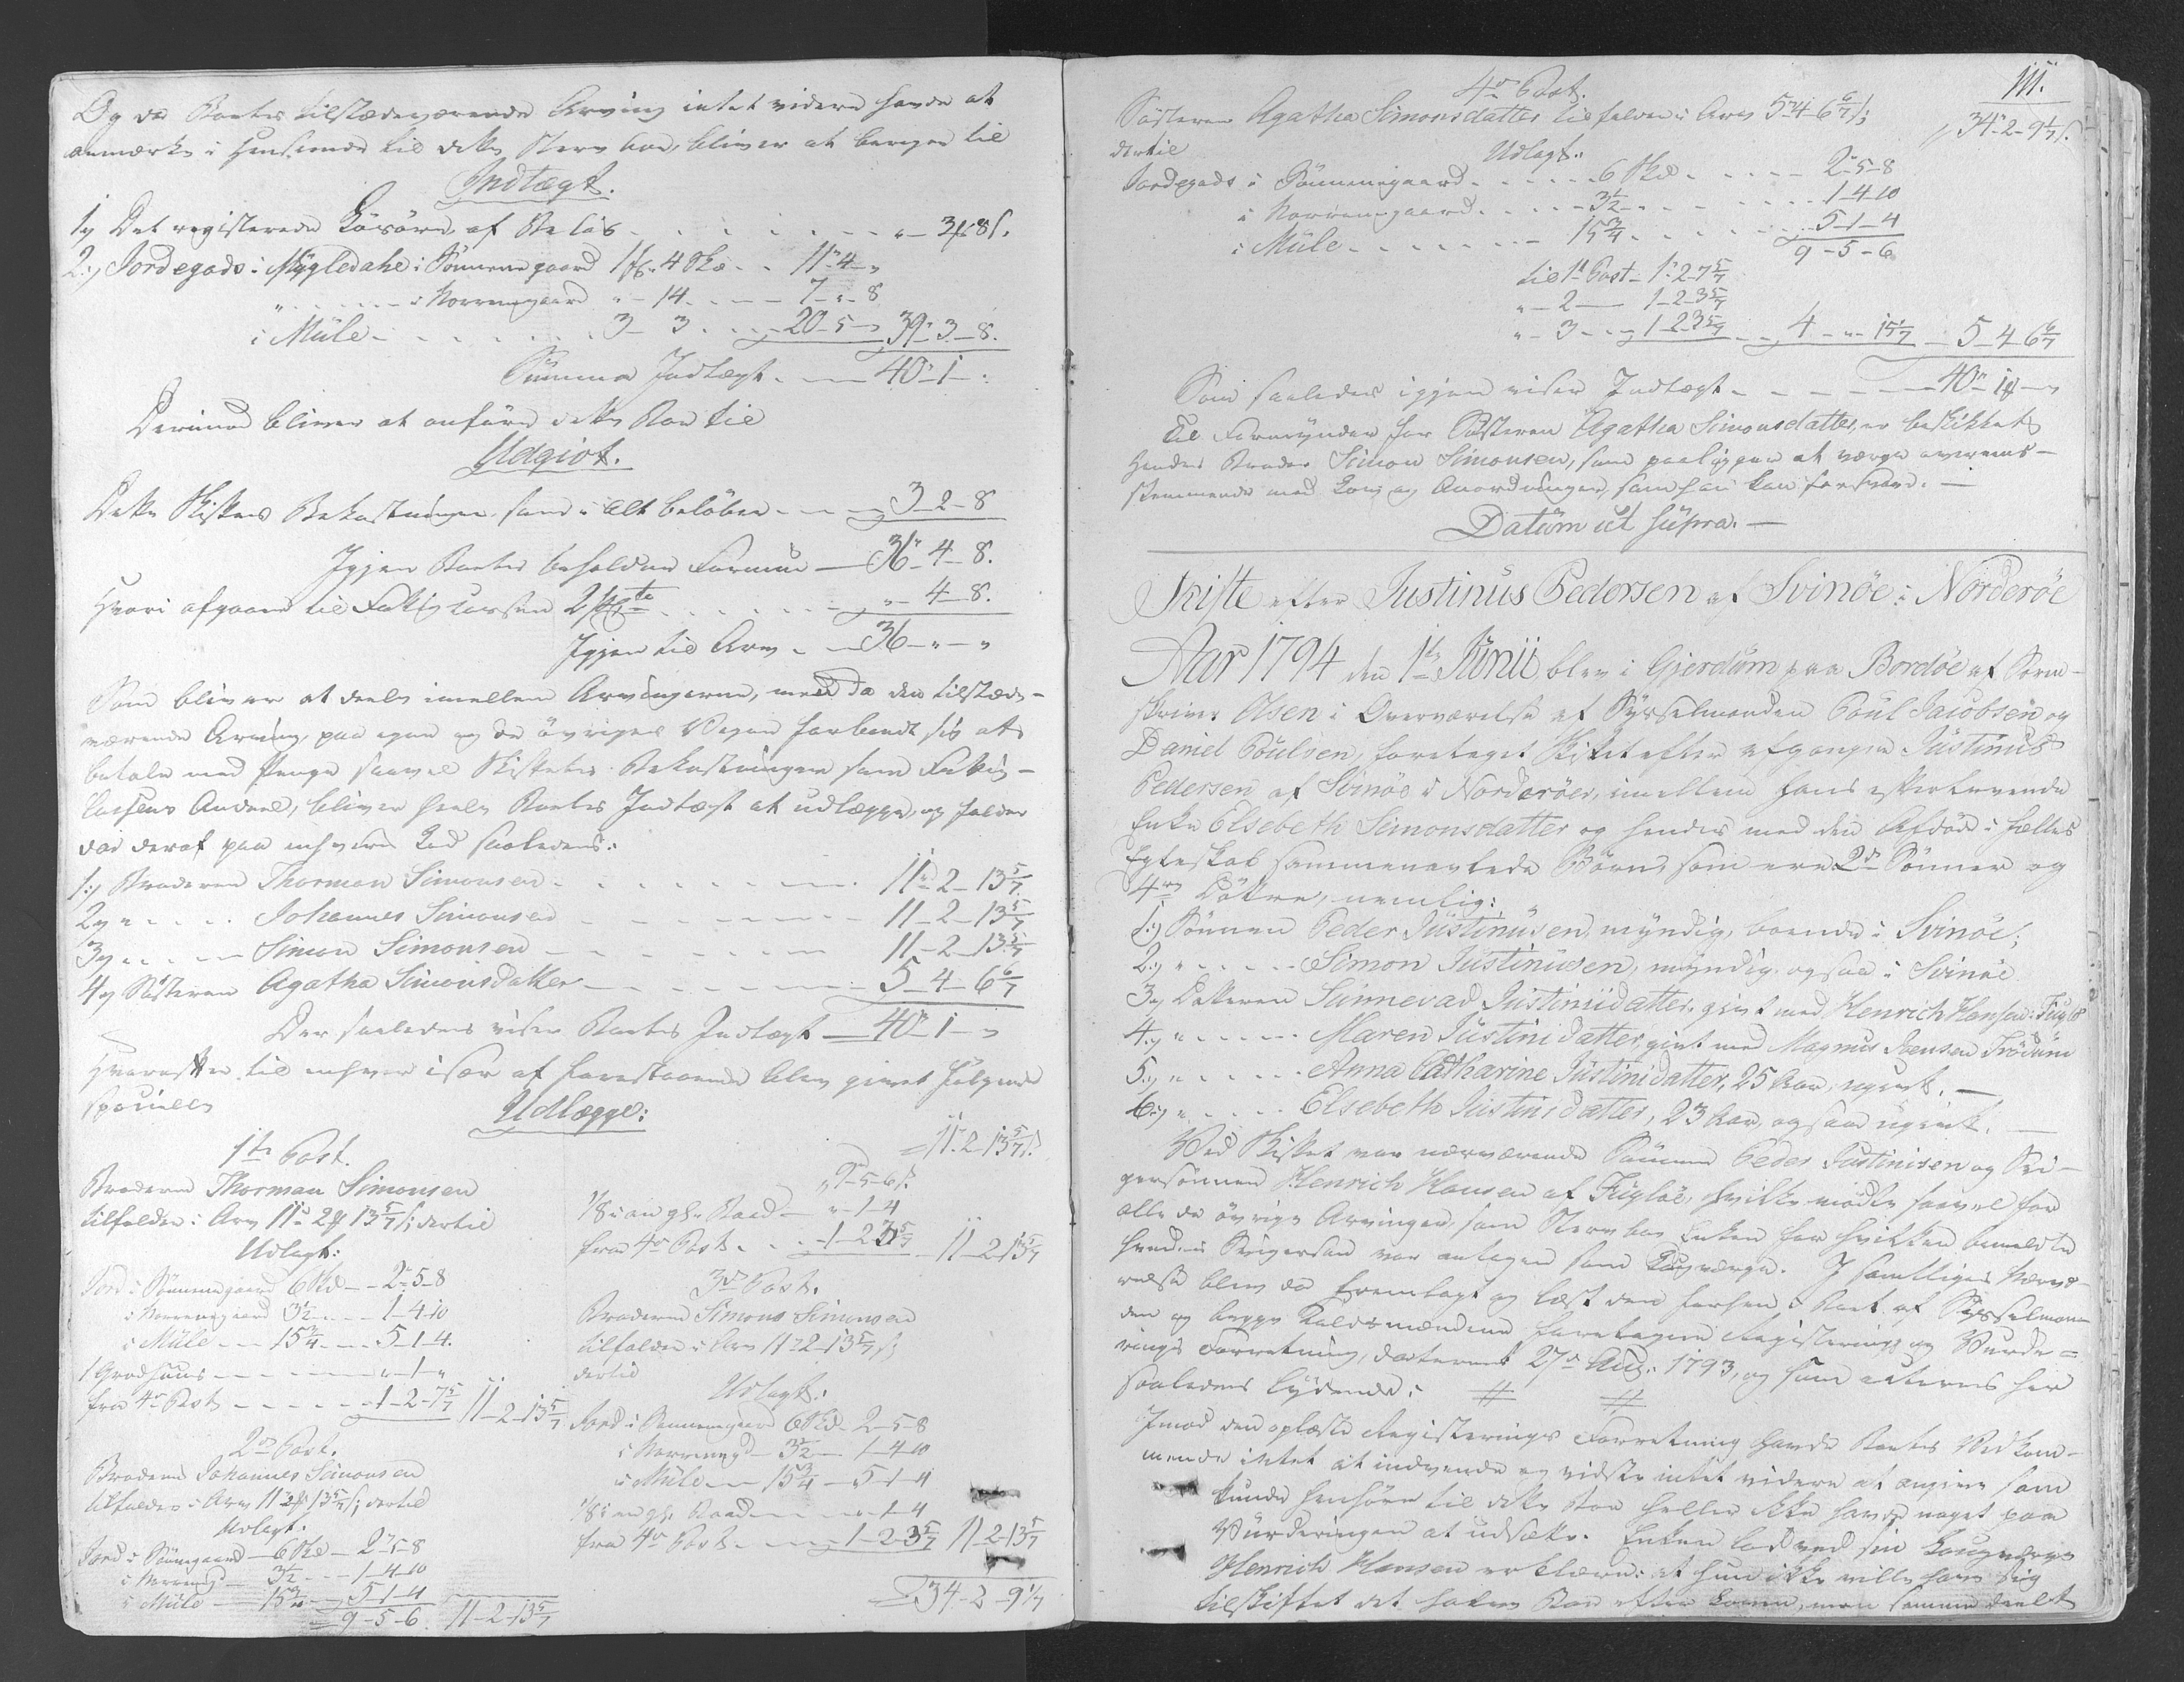 Og da Boets tilstædeværende Arving intet videre havde at
anmærke i Henseende til dette Sterv boe, bliver at beregne til
Indtægt.
1,) Det registerede Lösöre af Beløb - - - " - 3 # 8 s.
2,) Jordegods i Mygledahe i Sönnengaard 1 - 4 Skd - - 11 - 4 - "
" - - - i Norrengaard " - 14 - - - 7 - " - 8
i Müle - - - 3 - 3 - - - 20 - 5 - " 39 - 3 - 8.
Summa Indtægt - - 40 - 1 - :
Derimod bliver at anföre dette Boe til
Udgivt.
Dette Skiftes Bekostninger som i alt belöber - - - 3 - 2 - 8
Igjen Boets beholdne Formue - 36 - 4 - 8.
Hvori afgaaer til Fattig Cassen - - - " - 4 - 8.
Igjen til Arv - - 36 - " - "
Som bliver at deele imellem Arvingerne, med da den tilstæde-
værende Arving paa egne og de övriges Vegne forbandt sig at
betale med Penge saavel Skiftets Bekostninger som Fattig-
Cassens Andeel, bliver heele Boets Indtægt at udlægge, og falder
der deraf paa enhvers Lod saaledes:
1,) Broderen Thorman Simonsen - - - 11 - 2 - 13 5/7
2,) " - - - Johannes Simonsen - - - 11 - 2 - 13 5/7
3,) " - - - Simon Simonsen - - - 11 - 2 - 13 5/7
4,) Søsteren Agatha Simonsdatter - - - 5 - 4 - 6 6/7
Der saaledes viser Boets Indtægt - 40 - 1 - "
Hvorefter til enhver især af foranstaaende blev givet fölgende
specielle
Udlægge:
1ste Post.
Broderen Thorman Simonsen
tilfalder i Arv 11 - 2 # 13 5/7 s; dertil
Udlagt:
Jord i Sönnengaard 6 Skd - - 2 - 5 - 8
i Norrengaard 3 1/2 - - - 1 - 4 - 10
i Müle - - 15 3/4 - - - 5 - 1 - 4.
1 Grodhuus - - - " - 1 - "
fra 4de Post - - - 1 - 2 - 7 5/7 11 - 2 - 13 5/7
2den Post.
Broderen Johannes Simonsen
tilfalder i Arv 11 - 2 # 13 5/7 s; dertil
Udlagt.
Jord i Sönnegaard - 6 Skd - 2 - 5 - 8
i Norreng - 3 1/2 - - - 1 - 4 - 10
i Müle - 15 3/4 - 5 - 1 - 4
9 - 5 - 6. 11 - 2 - 13 5/7
11 - 2 - 13 5/7 s.
9 - 5 - 6 s
1/8 i en gl. Baad - - " - 1 - 4
fra 4de Post - - - 1 - 2 - 3 5/7 11 - 2 - 13 5/7
3die Post.
Broderen Simons Simonsen
tilfalder i Arv 11 - 2 - 13 5/7 s;
dertil
Udlagt.
Jord i Sönnengaard 6 Skd - 2 - 5 - 8
i Norrengd - 3 1/2 - 1 - 4 - 10
i Müle - - 15 3/4 - 5 - 1 - 4
1/8 i en gl. Baad - - - " - 1 - 4
fra 4de Post - - - 1 - 2 - 3 5/7 11 - 2 - 13 5/7
34 - 2 - 9 1/7
111.
4de Post.
34 - 2 - 9 1/7 s.
Søsteren Agatha Simonsdatter tilfalder i Arv 5 - 4 - 6 6/7 s;
dertil
Udlagt:
Jordegods i Sönnengaard - - - 6 Skd - - - 2 - 5 - 8
i Norrengaard - - - 3 1/2 - - - 1 - 4 - 10
i Müle - - - 15 3/4 - - - 5 - 1 - 4
9 - 5 - 6
til 1ste Post - 1 - 2 - 7 5/7
" - 2 - 1 - 2 - 3 5/7
" - 3 - - 1 - 2 - 3 5/7 - 4 - " - 15 1/7 - 5 - 4 - 6 6/7
Som saaledes igjen viser Indtægt - - - 40 - 1 - "
Til Formynder for Søsteren Agatha Simonsdatter, er beskikket
Hendes Broder Simon Simonsen, som paaligger at værge overeens-
stemmende med Lov og Anordninger, som han kan forsvare. -
Datüm üt süpra. -
Skifte efter Justinus Pedersen af Svinöe i Norderöe
Aar 1794 den 1te Junii blev i Gjerdüm paa Bordöe af Soren-
skriver Olsen i Overværelse af Sysselmanden Poul Jacobsen og
Daniel Poulsen, foretaget Skiftet efter afgangne Justinus
Pedersen af Svinöe i Norderöer, imellem hans efterlevende
Enke Elsebeth Simonsdatter og hendes med den Afdöde i fælles
Egteskab sammenavlede Börn, som ere 2de Sönner og
4re Döttre, nemlig:
1.) Sönnen Peder Justinusen, myndig, boende i Svinöe;
2.) " - - - Simon Justinusen, myndig, ogsaa i Svinöe
3.) Datteren Sünnevad Justinidatter, givt med Henrich Hansen i Fuglö
4.) " - - - Maren Justinidatter, givt med Magnus Joensen Trödüm
5.) " - - - Anna Catharine Justinidatter, 25 Aar, ugivt. -
6.) " - - - Elsebeth Justinidatter, 23 Aar, ogsaa ugivt. -
Ved Skiftet var nærværende Sönnen Peder Justinisen og Svi-
gersönnen Henrich Hansen af Fuglöe, hvilke mödte saavel for
alle de övrige Arvinger, som Sterv boe Enken for hvilken bemeldte
hendes Svigersön var antagen som Laugværge. I samtliges Nærvæ-
relse blev da fremlagt og læst den forhen i Boet af Sysselman-
den og begge Laldsmændene foretagne Registerings og Vurde-
rings Forretning, dateret 27de Aug: 1793, og som acteres her
saaledes lydende:
Imod den oplæste Registerings Forretning havde Boets Vedkom-
mende intet at indvende og vidste intet videre at angive som
kunde henhöre til dette Boe heller ikke havde noget paa
Vürderingen at udsætte. Enken lod ved sin Laugværge
Henrich Hansen erklære: at hun ikke ville have sig
tilskiftet det halve Boe efter Loven, men samme deelt